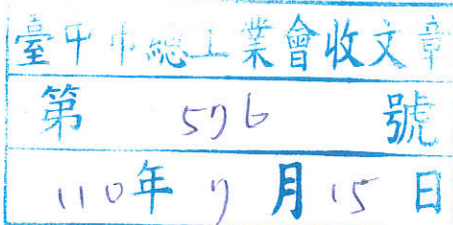 臺中市總工業會收文章
第 576 號
110年 7 月 15 日